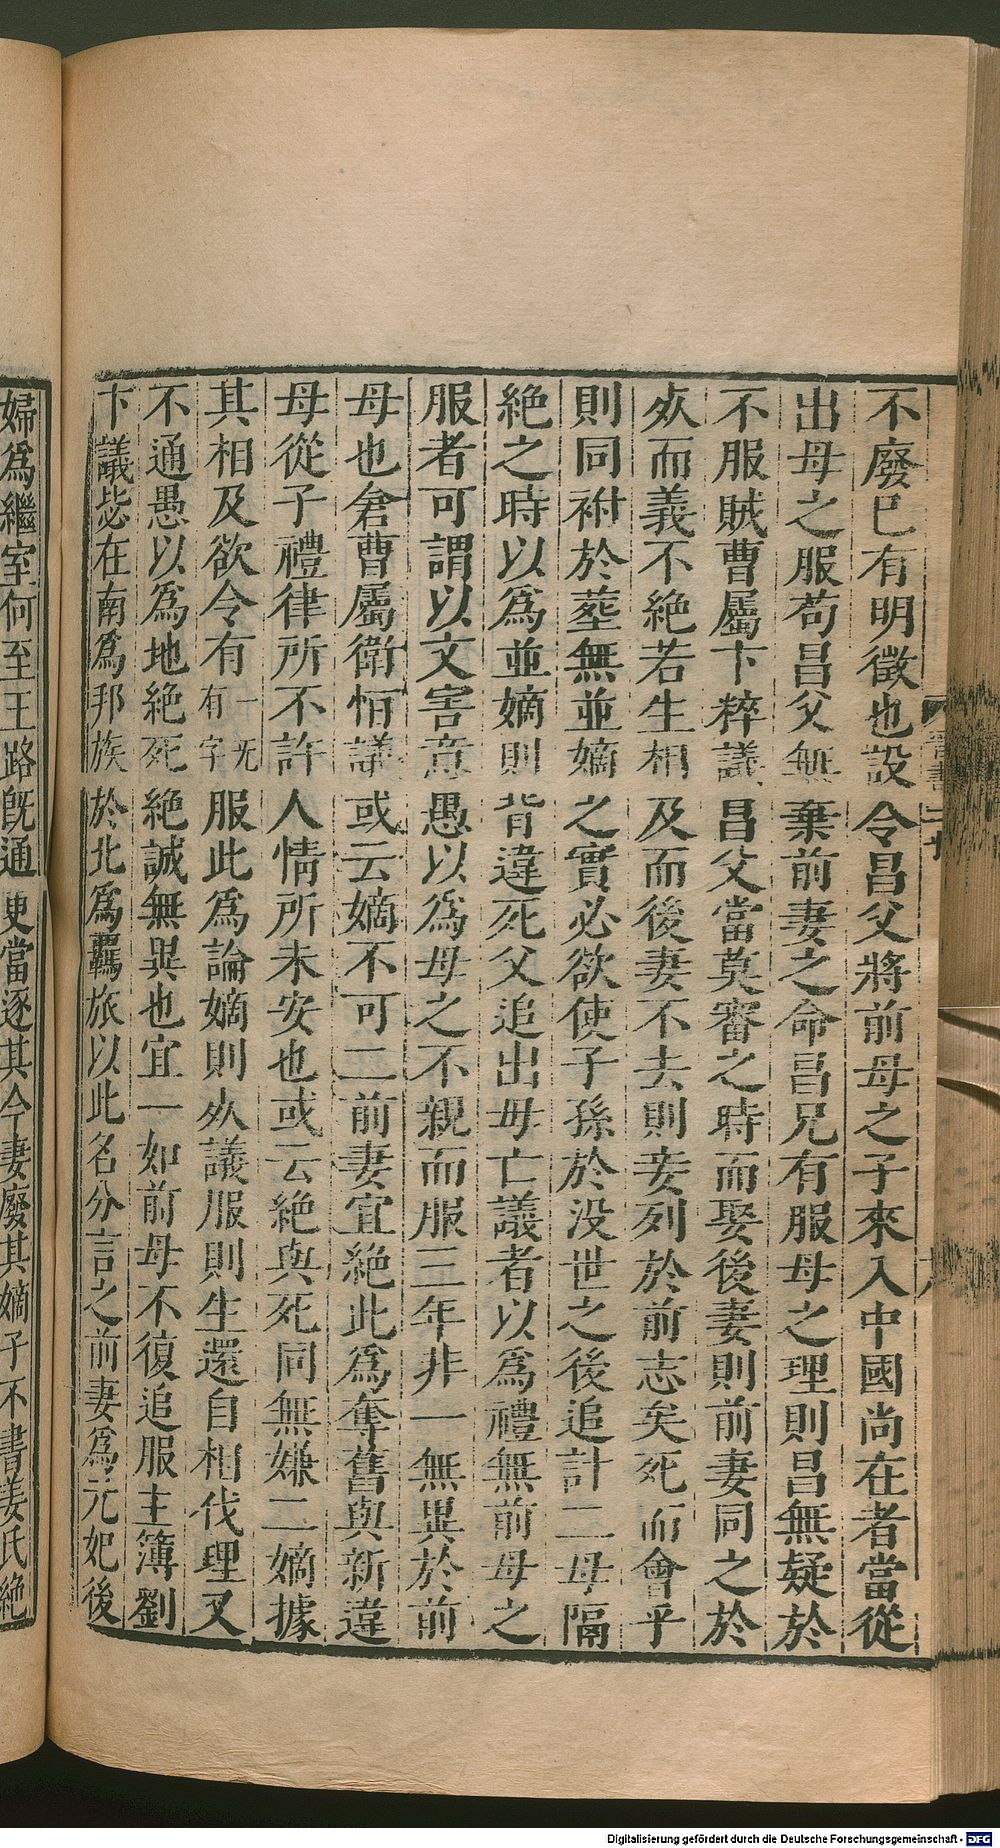 不廢已有明徵也設令昌父將前母之子來入中國尚在者當從
出母之服苟昌父無棄前妻之命昌兄有服母之理則昌無疑於
不服賊曹屬卞粹議昌父當莫審之時而娶後妻則前妻同之於
𣦸而義不絶若生相及而後妻不去則妾列於前志矣死而會乎
則同祔於葬無並嫡之實必欲使子孫於没世之後追計二母隔
絶之時以爲並嫡則背違死父追出母亡議者以爲禮無前母之
服者可謂以文害意愚以爲母之不親而服三年非一無異於前
母也倉曹屬衛恒議或云嫡不可二前妻宜絶此爲奪舊與新違
母從子禮律所不許人情所未安也或云絶與死同無嫌二嫡據
其相及欲令有一无有字服此爲論嫡則𣦸議服則生還自相伐理又
不通愚以爲地絶死絶誠無異也宜一如前母不復追服主簿劉
卞議毖在南爲邦族於北爲羈旅以此名分言之前妻爲元妃後
婦爲繼室何至王路既通更當逐其今妻廢其嫡子不書姜氏絶
晉書二十
Digitalisierung gefördert durch die Deutsche Forschungsgemeinschaft - DFG